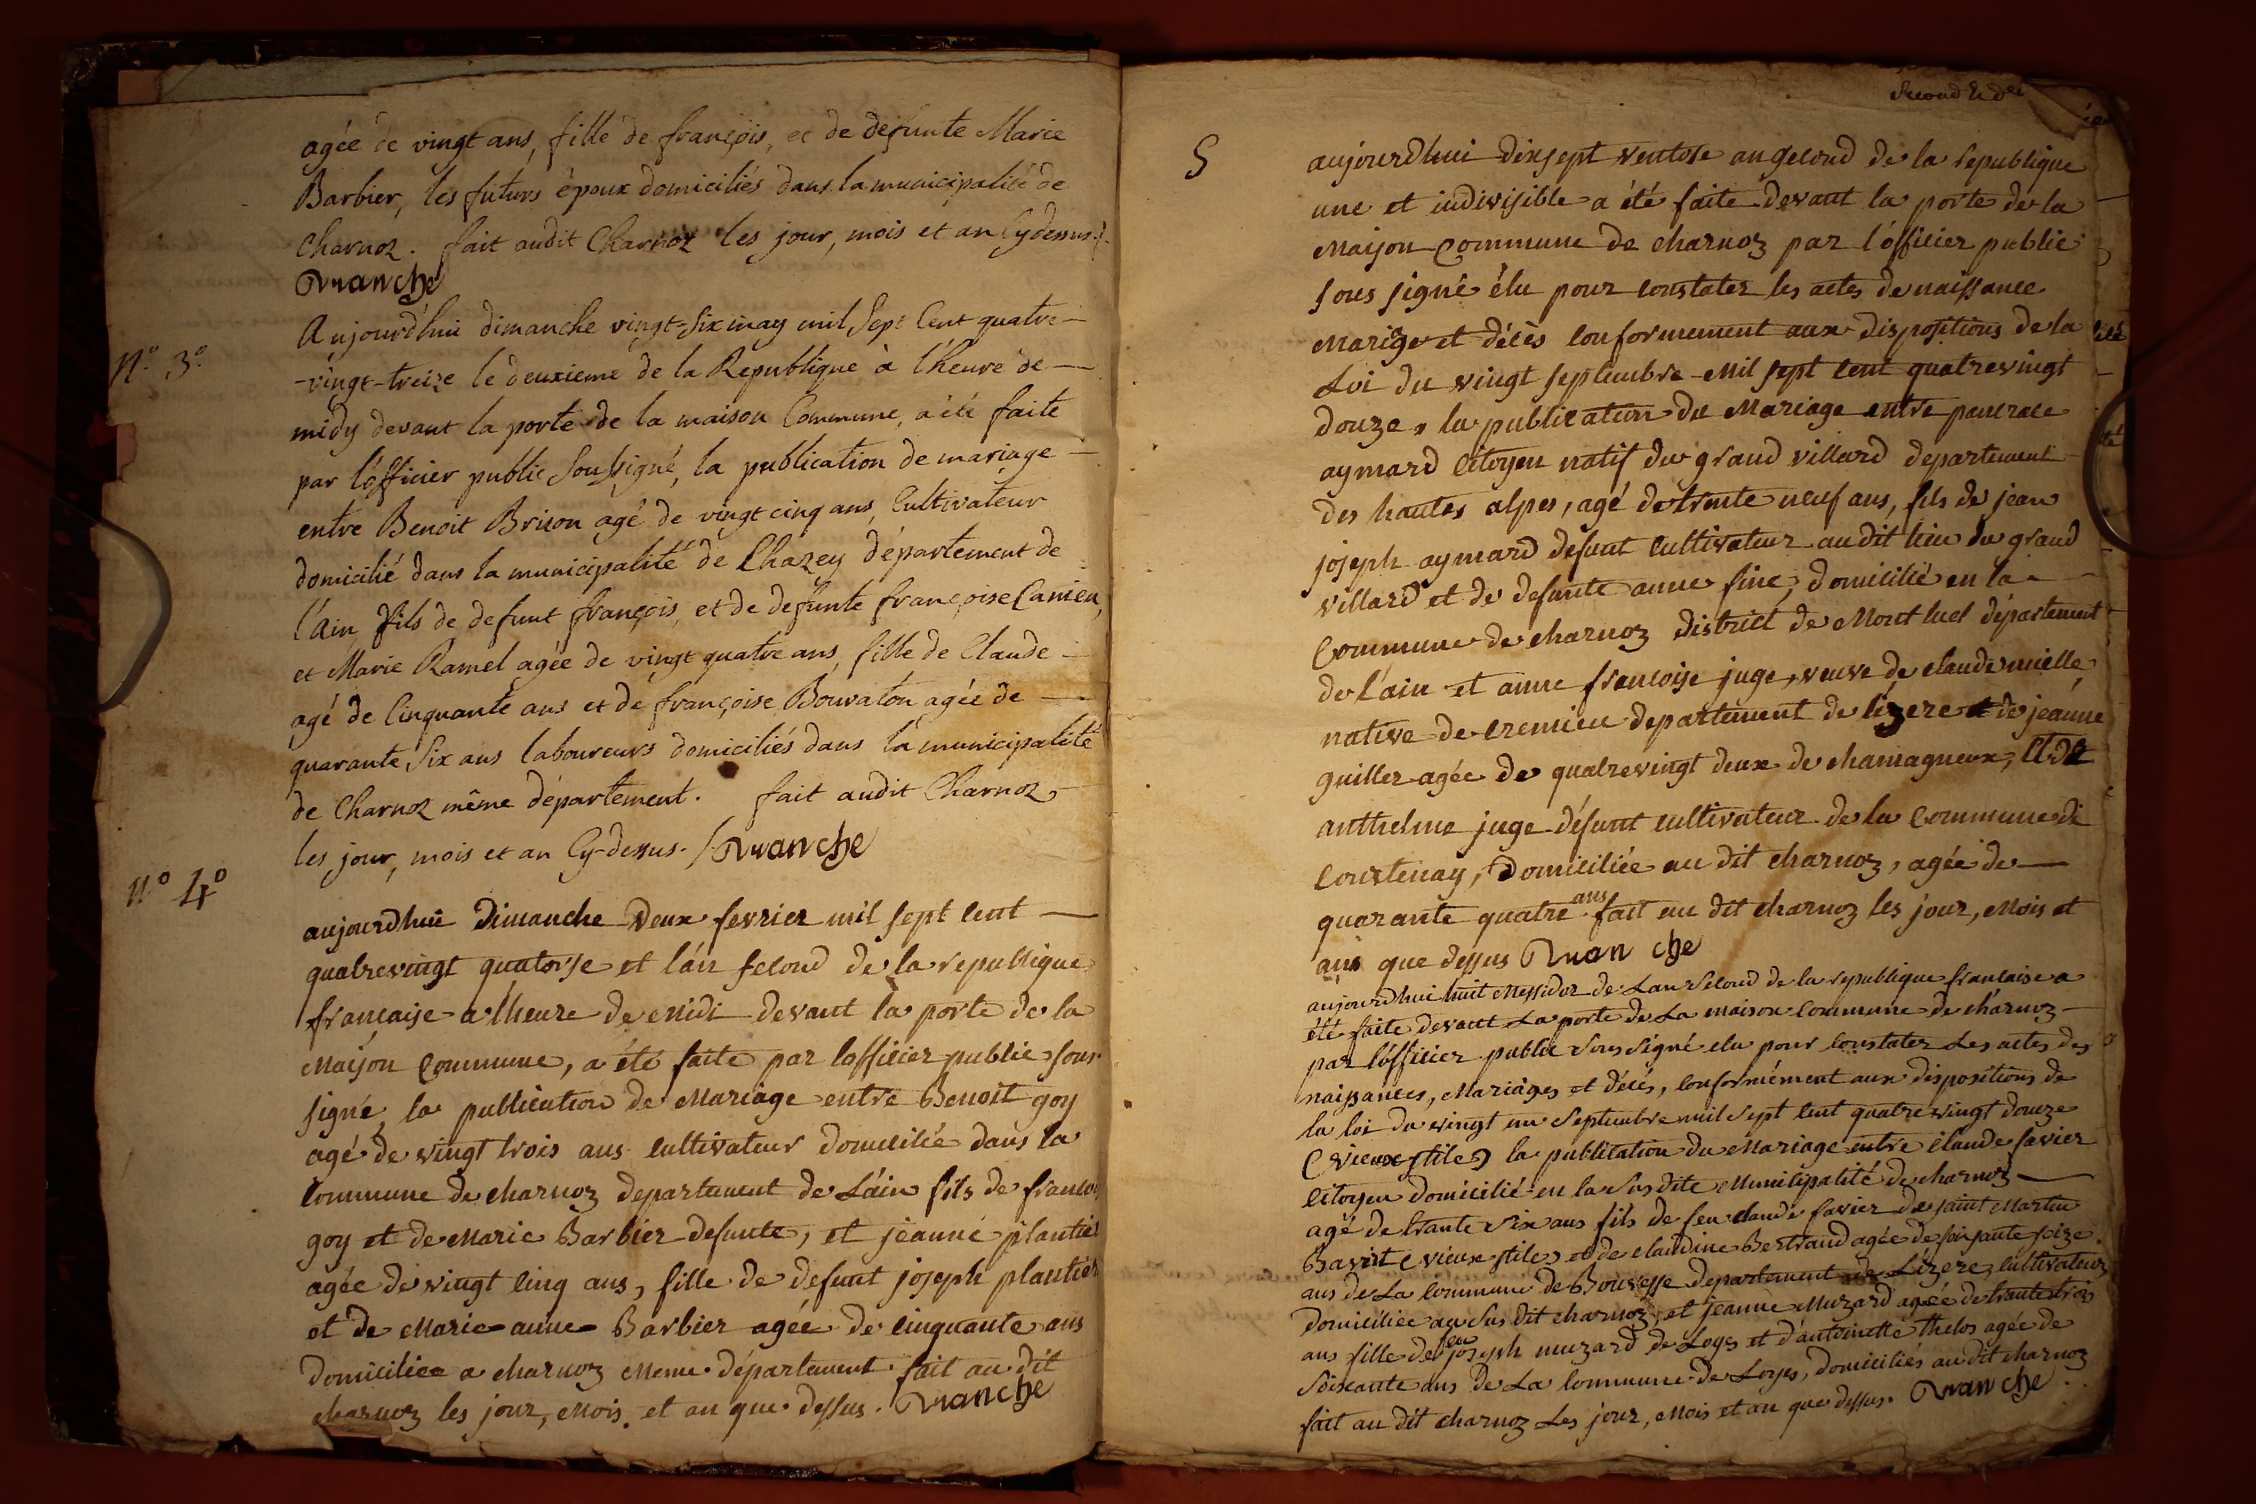 agée de vingt ans, fille de françois, et de defunte Marie
Barbier, les futurs époux domiciliés dans la municipalité de
Charnoz. fait audit Charnoz les jour, mois et an Cydessus./.
Ruanche
N.º 3.º
Aujourd'hui dimanche vingt-six may mil Sept Cent quatre-
-vingt-treize le deuxieme de la Republique à l'heure de
midy devant la porte de la maison Commune, a été faite
par l'officier public Soussigné, la publication de mariage
entre Benoit Brison agé de vingt cinq ans, Cultivateur
domicilié dans la municipalité de Chazey département de
l'Ain, fils de defunt françois, et de defunte françoise Canien,
et Marie Ramel agée de vingt quatre ans, fille de Claude
agé de Cinquante ans et de françoise Bouvaton agée de
quarante Six ans laboureurs domiciliés dans la municipalité
de Charnoz même département. fait audit Charnoz
les jour, mois et an Cy-dessus. / Ruanche
N.º 4º
aujourdhui Dimanche Deux fevrier mil sept cent
quatrevingt quatorse et l'an second de la republique
francaise a lheure de midi devant la porte de la
Maison Commune, a été faite par lofficier public sous
signé, la publication de Mariage entre Benoit goy
agé de vingt trois ans cultivateur domicilié dans la
Commune de charnoz departement de L'ain fils de francois
goy et de Marie Barbier defunte, et jeanne plantier
agée de vingt cinq ans, fille de defunt joseph plantier
et de Marie anne Barbier agée de cinquante ans
domiciliee a charnoz meme département. fait au dit
charnoz les jour, mois, et an que dessus. Ruanche
Second &
5
aujourdhui dixsept ventose an second de la republique
une et indivisible a été faite devant la porte de la
Maison Commune de charnoz par l'officier public
sous signé élu pour constater les actes de naissance
Mariage et décès conformement aux dispositions de la
Loi du vingt septembre Mil sept cent quatrevingt
douze, la publication du Mariage entre pancrace
aymard Citoyen natif du grand villard departement
des hautes alpes, agé de trente neuf ans, fils de jean
joseph aymard defunt cultivateur au dit lieu du grand
villard et de defunte anne fine, domicilié en la
Commune de charnoz district de Montluel département
de l'ain et anne francoise juge, veuve de claude mielle
native de cremieu departement de lizere et de jeanne
guiller agée de quatrevingt deux de chamagneux,
anthelme juge défunt cultivateur de la Commune de
Courtenay, Domiciliée au dit charnoz, agée de
quarante quatre ans fait au dit charnoz les jour, Mois et
an que dessus Ruan che
aujourdhui huit Messidor de Lan Second de la republique francaise a
été faite devant La porte de La maison Commune de charnoz
par l'officier public Sous Signé elu pour Constater Les actes des
naissances, Mariages et décès, conformément aux dispositions de
la loi du vingt un Septembre mil sept cent quatre vingt douze
(vieux stile) la publication du Mariage entre Claude favier
Citoyen domicilié en la Susdite Municipalité de charnoz
agé de trante six ans fils de feu claude favier de saint Martin
Bavin (vieux stile) et de claudine Bertrand agée de soixante seize
ans de La Commune de Bouvesse departement de Lizere, cultivateur
domiciliée au Sus dit charnoz, et jeanne Muzard agée de trante trois
ans fille de feu joseph muzard de Loyes et d'antoinette Thelos agée de
Soixante ans de La Commune de Loyes, domiciliés au dit charnoz
fait au dit charnoz Les jour, Mois et an que dessus. Ruan che